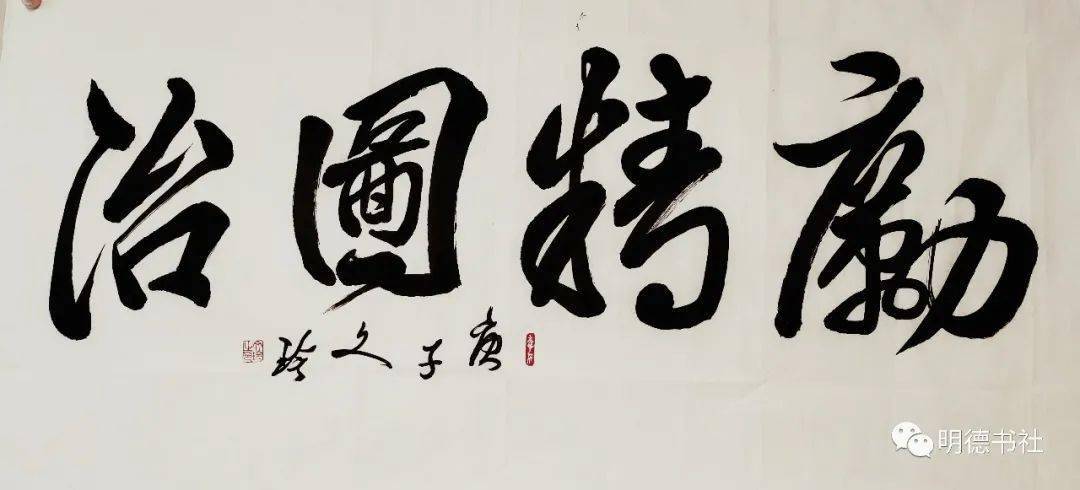 勵精圖治
庚子文玲
明德书社